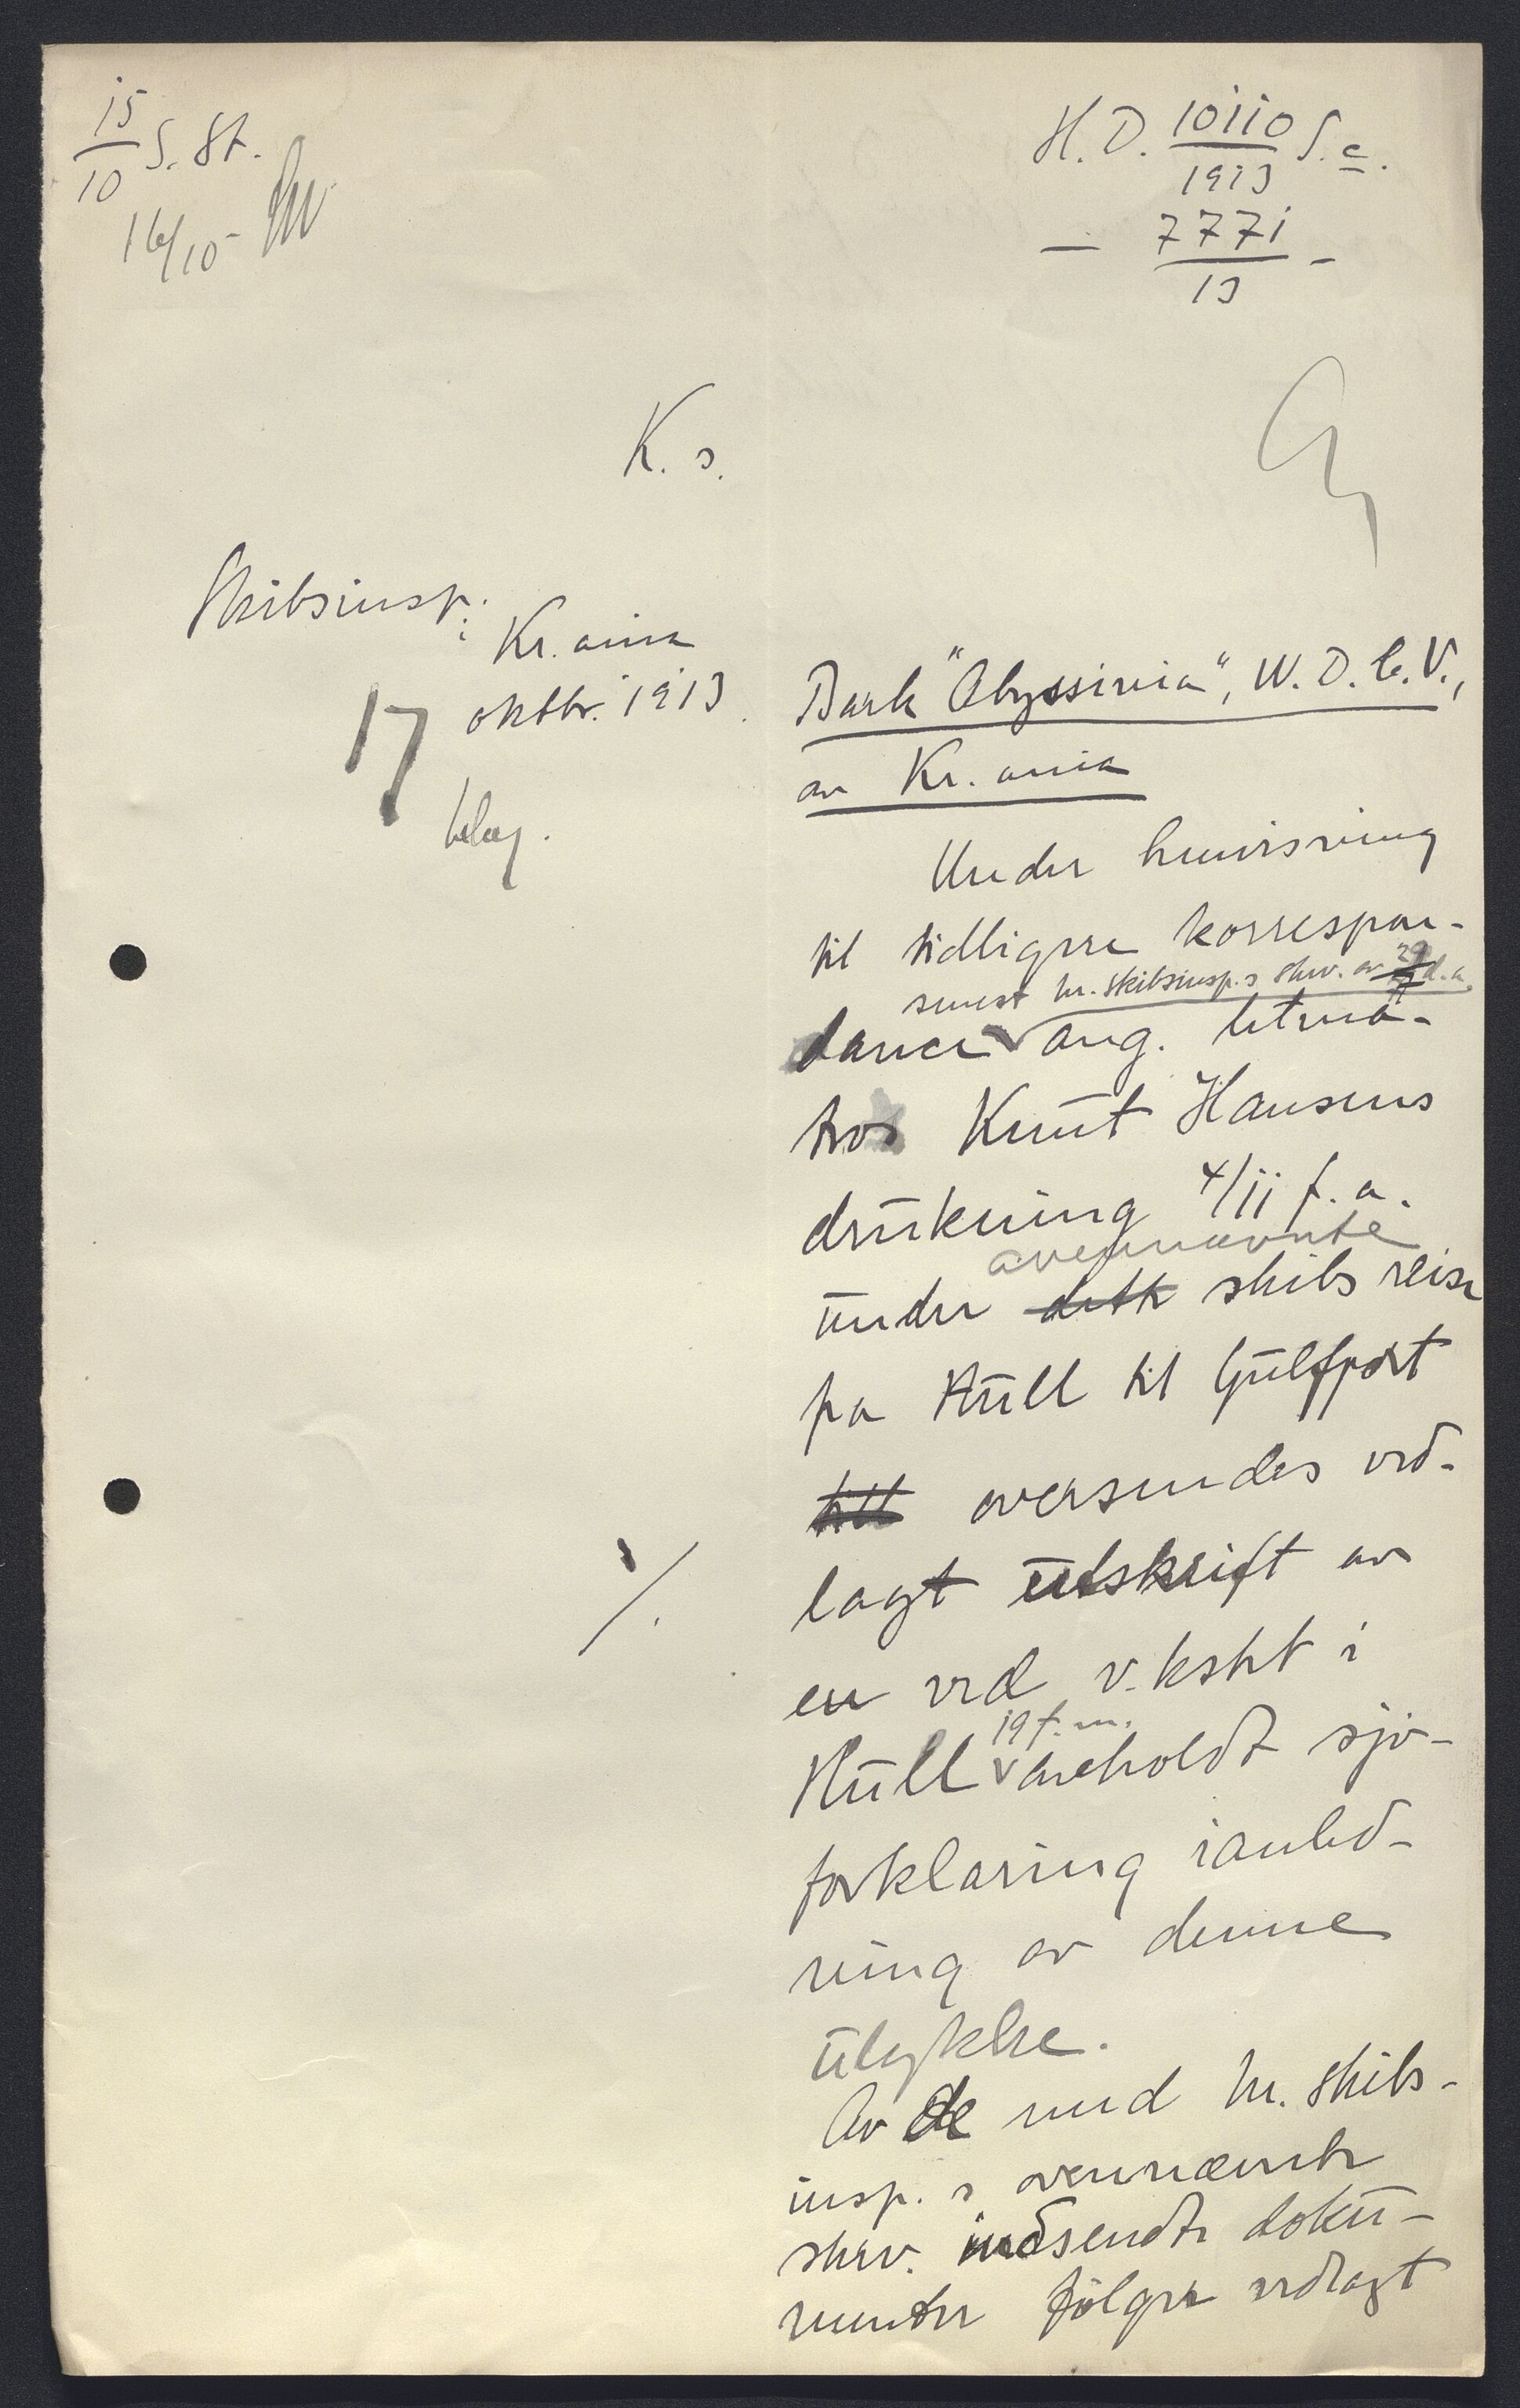 15/10 S. St.
16/10
H. D. 10110/1913 S. c.
— 7771/13 –
K. s.
Skibsinsp:
Kr.ania
17 oktbr. 1913.
bilag.
Bark "Abyssinia", W. D. C. V.,
av Kr.ania
Under henvisning
til tidligere korrespon-
senest hr. skibsinsp.s skr. av 29 d.a.
dance ang. letma-
tros Knut Hansens
drukning 4/11 f. a.
ovennævnte
under dette skibs reise
fra Hull til Gulfport
oversendes ved-
lagt utskrift av
en ved v.kslt i
19 f.m.
Hull avholdt sjø-
forklaring i anled-
ning av denne
ulykke.
Av de med hr. skibs-
insp.s ovennævnte
skrv. indsendte doku-
menter følger vedlagt